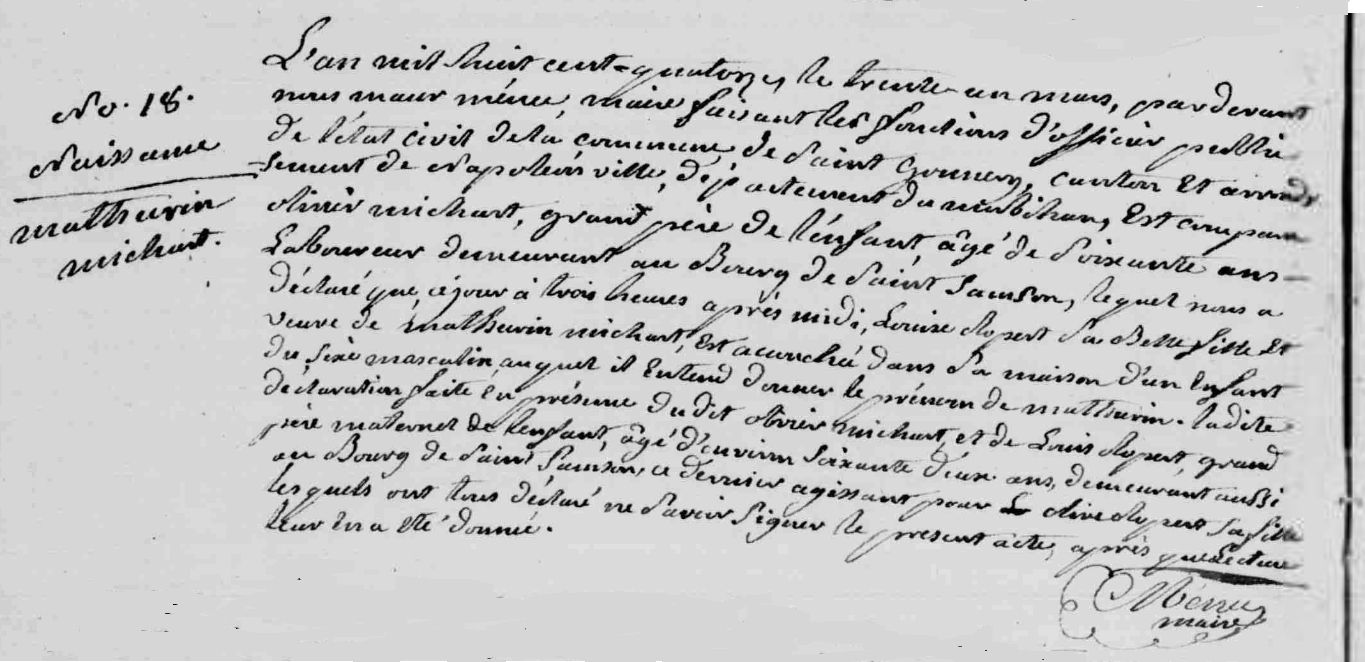 No. 18.
Naissance
mathurin
michart.
L'an mil huit cent-quatorze, le trente-un mars, pardevant
nous maur ménéc, maire faisant les fonctions d'officier public
de l'état civil de la commune de Saint Gonnery, canton Et arrondis
=sement de Napoléonville, département du morbihan, Est comparu
olivier michart, grand père de l'enfant, âgé de Soixante ans
Laboureur demeurant au Bourg de Saint Samson, lequel nous a
déclaré que, ce jour à trois heures après midi, Louise Ropert Sa Belle fille Et
veuve de mathurin michart, Est acouchée dans Sa maison d'un Enfant
du Sexe masculin, auquel il Entend donner le prénom de mathurin. Ladite
déclaration faite En présence dudit olivier michart, et de Louis Ropert, grand
père maternel de l'enfant, âgé d'environ Soixante deux ans, demeurant aussi
au Bourg de Saint Samson, ce dernier agissant pour olive Ropert Sa fille
lesquels ont tous déclaré ne Savoir Signer le present acte, après que Lecture
leur En a Eté donnée.
Ménéc
maire